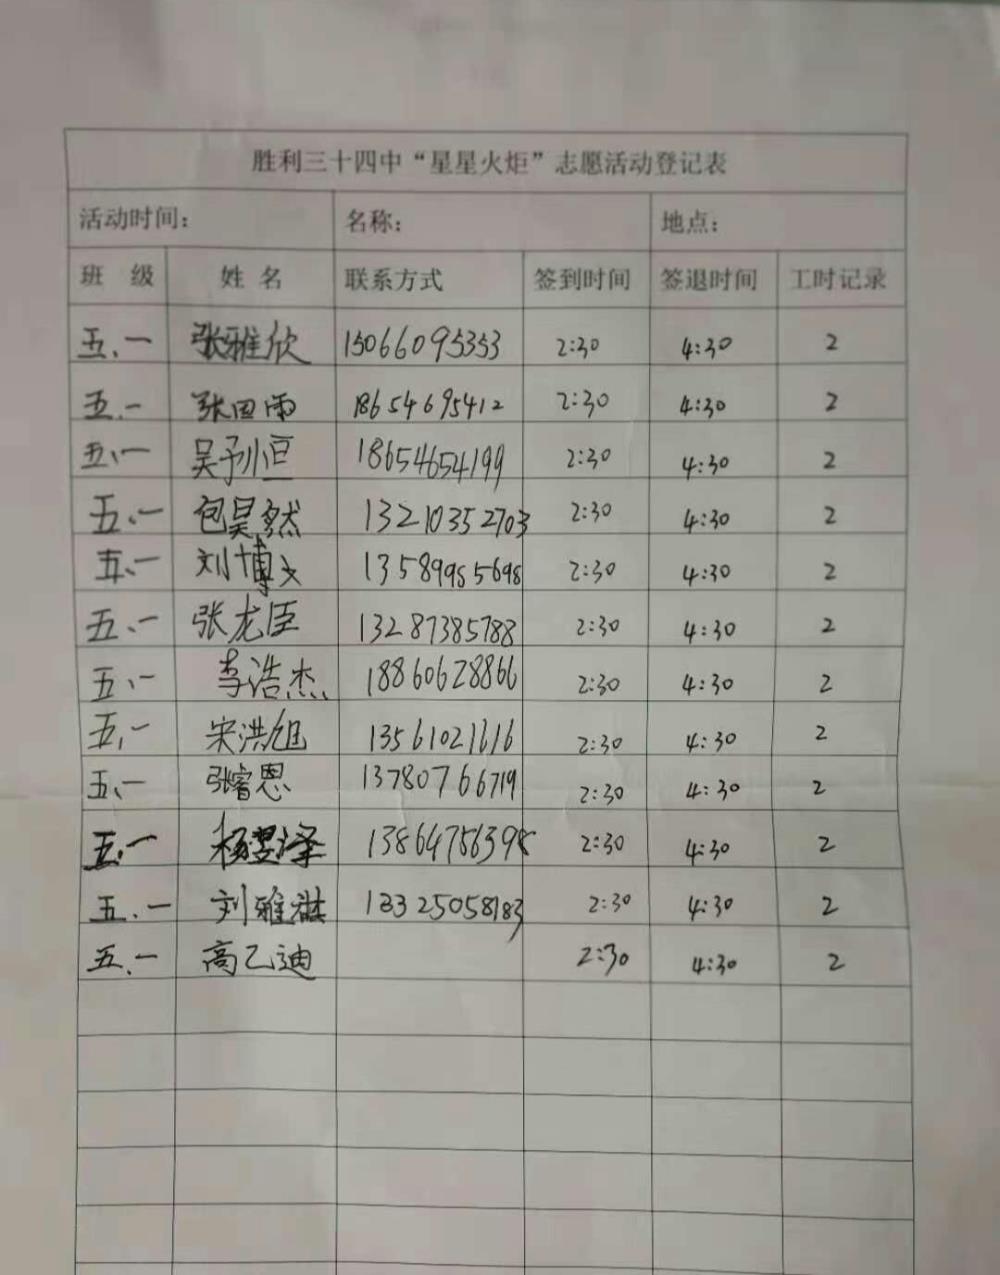 胜利三十四中“星星火炬”志愿活动登记表
活动时间： 名称： 地点：
班 级 姓 名 联系方式 签到时间 签退时间 工时记录
五、一 张雅欣 15066095353 2:30 4:30 2
五.一 张田雨 18654695412 2:30 4:30 2
五、一 吴予恒 18654654199 2:30 4:30 2
五、一 包昊然 13210352703 2:30 4:30 2
五、一 刘博文 13589985698 2:30 4:30 2
五、一 张龙臣 13287385788 2:30 4:30 2
五、一 李浩杰 18860628866 2:30 4:30 2
五、一 宋洪旭 13561021616 2:30 4:30 2
五、一 张睿恩 13780766719 2:30 4:30 2
五、一 杨翌泽 2:30 4:30 2
五.一 刘雅淇 13325058183 2:30 4:30 2
五、一 高乙迪 2:30 4:30 2